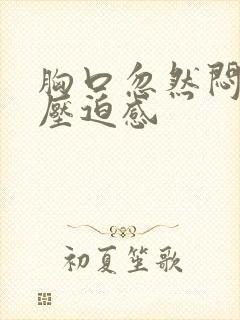 胸口忽然悶
壓迫感
初夏笙歌